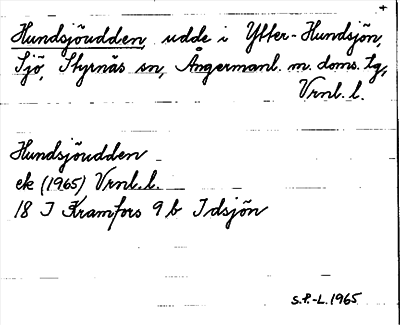 Hundsjöudden, udde i Ytter-Hundsjön,
Sjö, Styrnäs sn, Ångermanl. m. doms. tg,
Vrnl. l.
Hundsjöudden
ek (1965) Vrnl. l.
18 I Kramfors 9 b Idsjön
S.P.-L. 1965